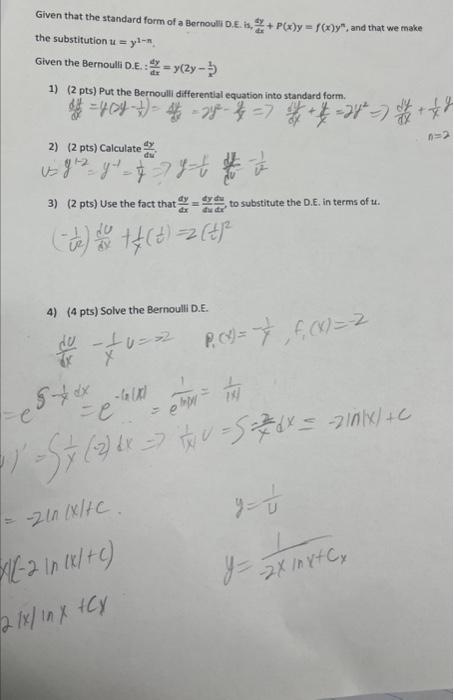 Given that the standard form of a Bernoulli D.E. is, dy/dx + P(x)y = f(x)yⁿ, and that we make
the substitution u = y¹⁻ⁿ.
Given the Bernoulli D.E. : dy/dx = y(2y − 1/x)
1) (2 pts) Put the Bernoulli differential equation into standard form.
dy/dx = y(2y − 1/x) = dy/dx = 2y² − y/x => dy/dx + y/x = 2y² => dy/dx + 1/x y
n=2
2) (2 pts) Calculate dy/du.
u = y¹⁻² = y⁻¹ = 1/y => y = 1/u dy/du = −1/u²
3) (2 pts) Use the fact that dy/dx = dy/du du/dx, to substitute the D.E. in terms of u.
(−1/u²) du/dx + 1/x (1/u) = 2(1/u)²
4) (4 pts) Solve the Bernoulli D.E.
du/dx − 1/x u = −2 P₁(x) = −1/x, f₁(x) = −2
= e^∫−1/x dx = e^−ln|x| = 1/e^ln|x| = 1/|x|
)' = ∫1/x (−2) dx => 1/|x| u = ∫−2/x dx = −2ln|x| + C
= −2 ln|x| + C. y = 1/u
x|(−2 ln|x| + C) y = 1/(−2x lnx + Cx)
2|x| ln x + Cx